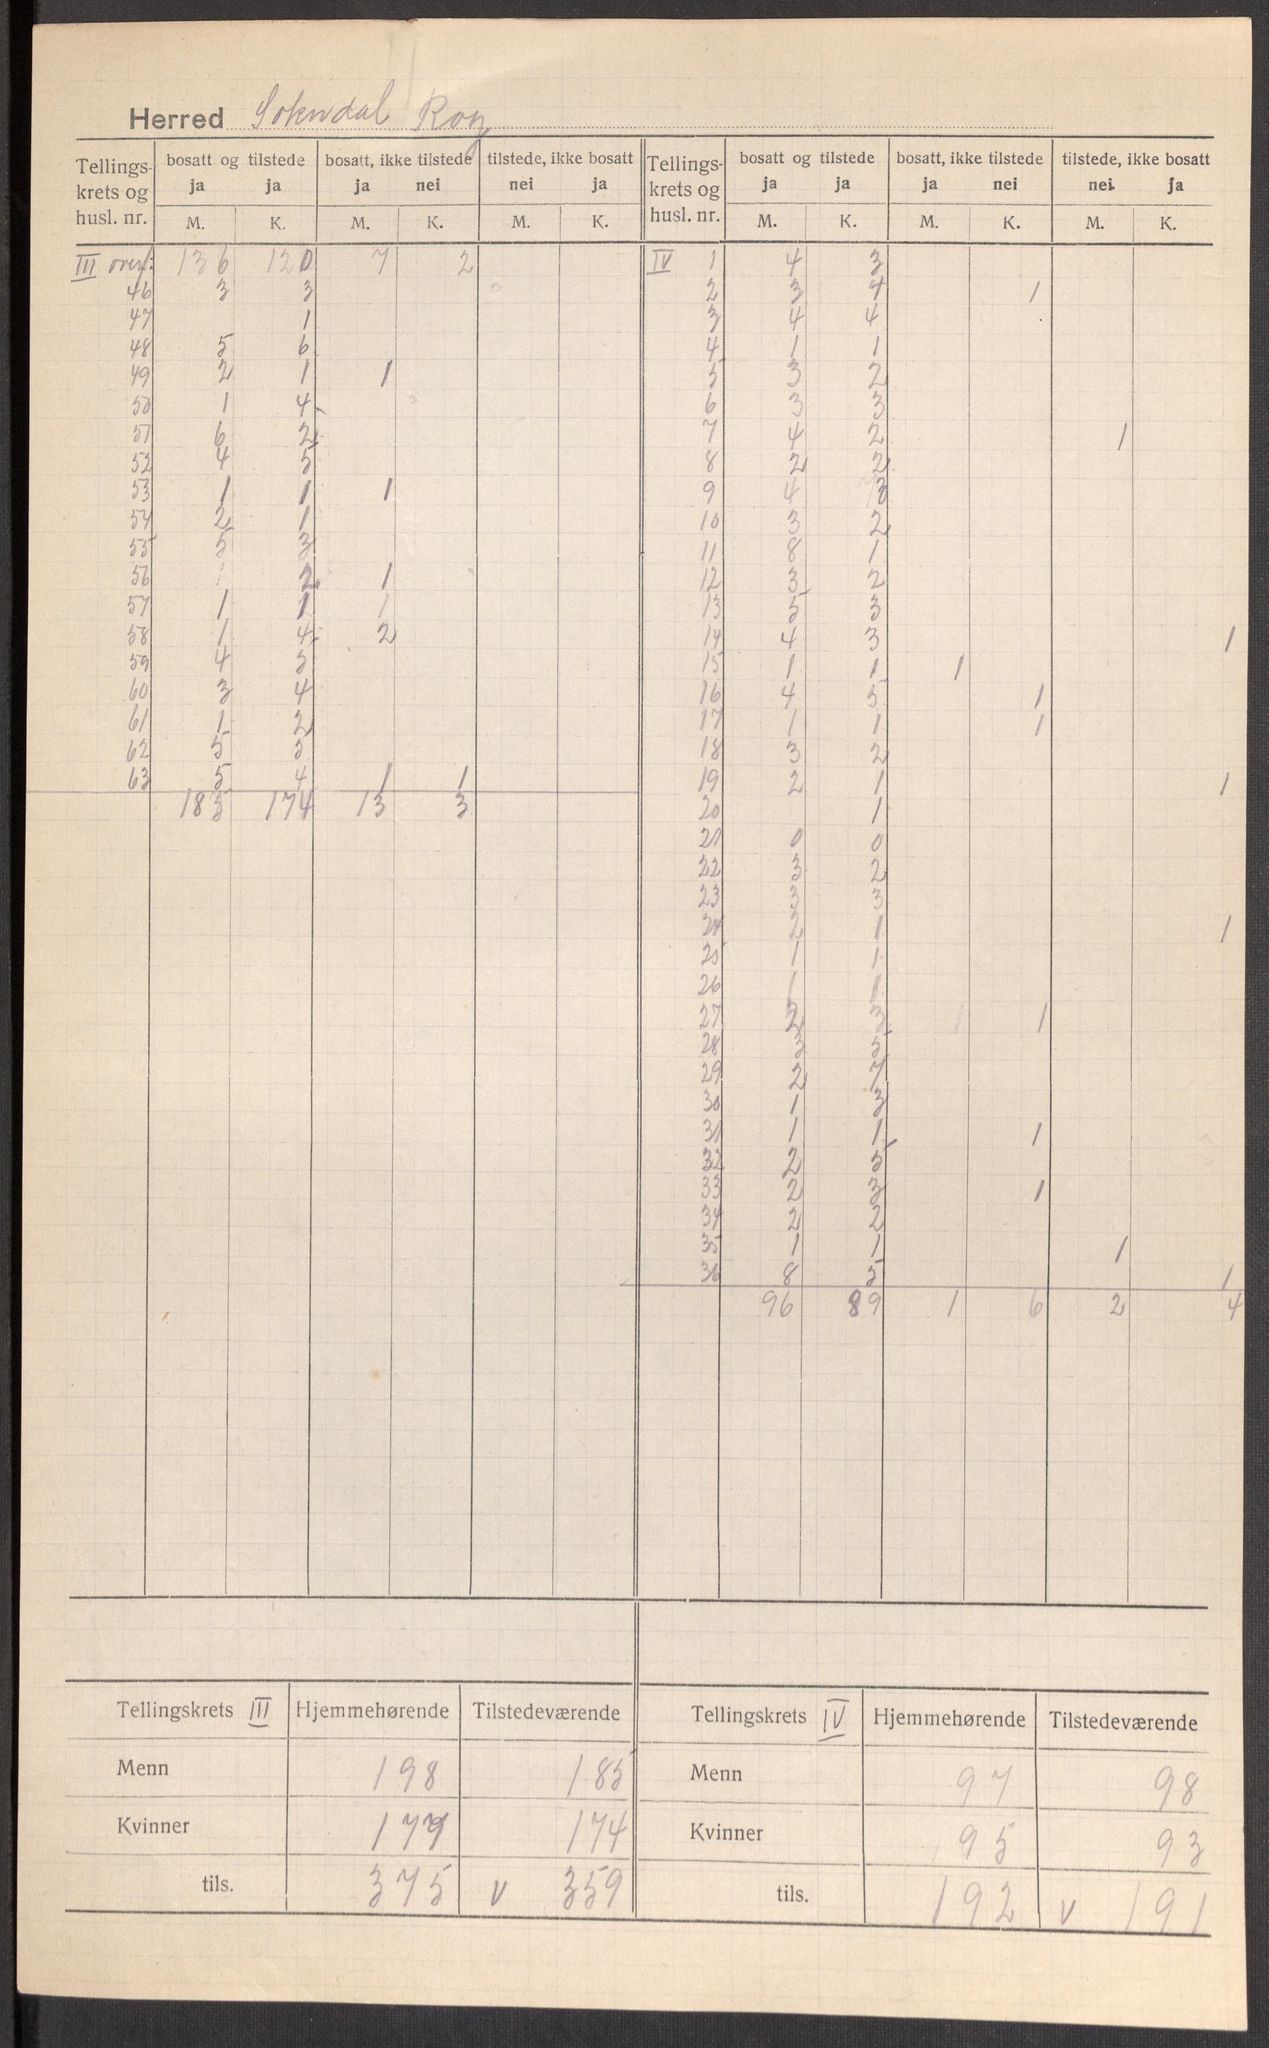 Herred Sokndal Rog
Tellings- krets og husl. nr. | bosatt og tilstede ja ja | bosatt, ikke tilstede ja nei | tilstede, ikke bosatt nei ja | Tellings- krets og husl. nr. | bosatt og tilstede ja ja | bosatt, ikke tilstede ja nei | tilstede, ikke bosatt nei ja
M. K. M. K. M. K. M. K. M. K. M. K.
III overf: 136 120 7 2
46 3 3
47 1
48 5 6
49 2 1 1
50 1 4
51 6 2
52 4 5
53 1 1 1
54 2 1
55 5 3
56 1 2 1
57 1 1 1
58 1 4 2
59 4 5
60 3 4
61 1 2
62 5 5
63 5 4 1 1
183 174 13 3
IV 1 4 3
2 3 4 1
3 4 4
4 1 1
5 3 2
6 3 3
7 4 2 1
8 2 2
9 4 3
10 3 2
11 8 1
12 3 2
13 5 3
14 4 3 1
15 1 1 1
16 4 5 1
17 1 1 1
18 3 2
19 2 1 1
20 1
21 0 0
22 3 2
23 3 3
24 2 1 1
25 1 1
26 1 1
27 2 3 1 1
28 3 5
29 2 7
30 1 3
31 1 1 1
32 2 5
33 2 3 1
34 2 2
35 1 1 1
36 8 5 1
96 89 1 6 2 4
Tellingskrets III Hjemmehørende Tilstedeværende
Menn 198 185
Kvinner 177 174
tils. 375 v 359
Tellingskrets IV Hjemmehørende Tilstedeværende
Menn 97 98
Kvinner 95 93
tils. 192 v 191